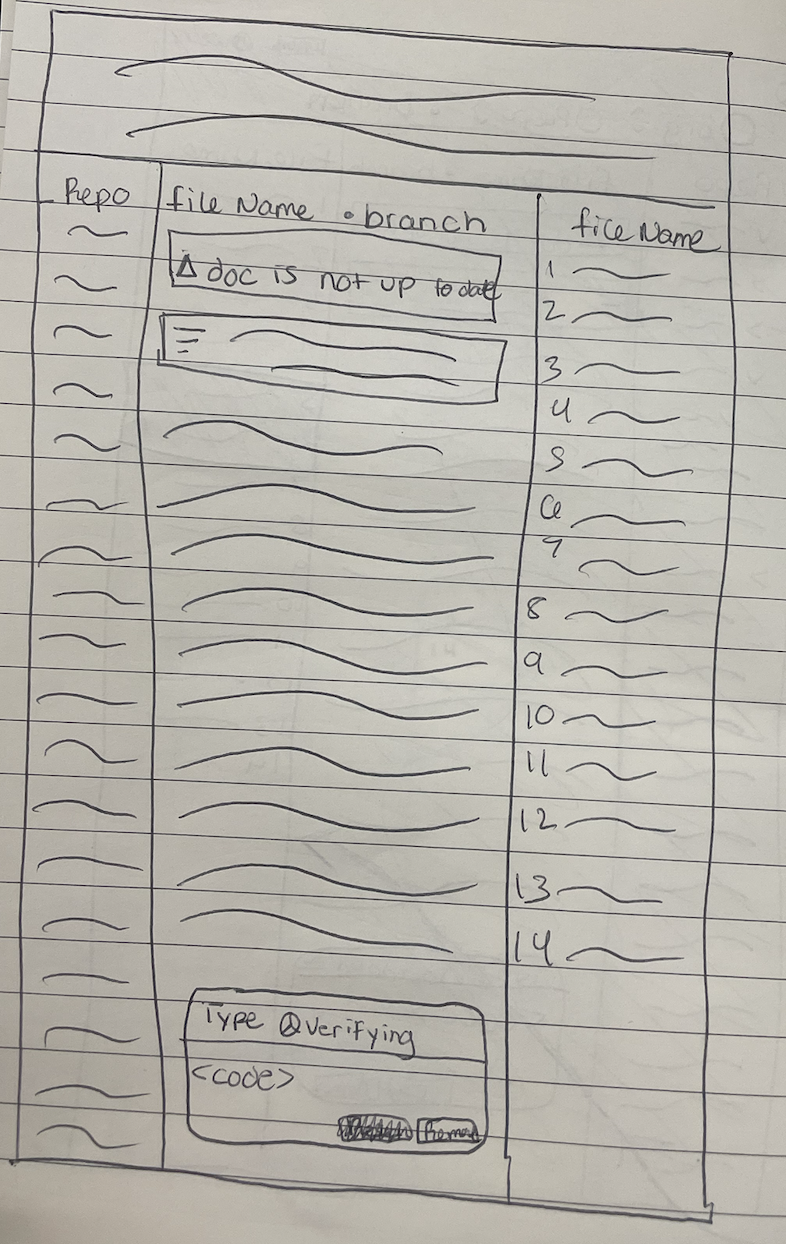 Repo
file Name • branch
⚠ doc is not up to date
Type Verifying
<code>
file Name
1
2
3
4
5
6
7
8
9
10
11
12
13
14